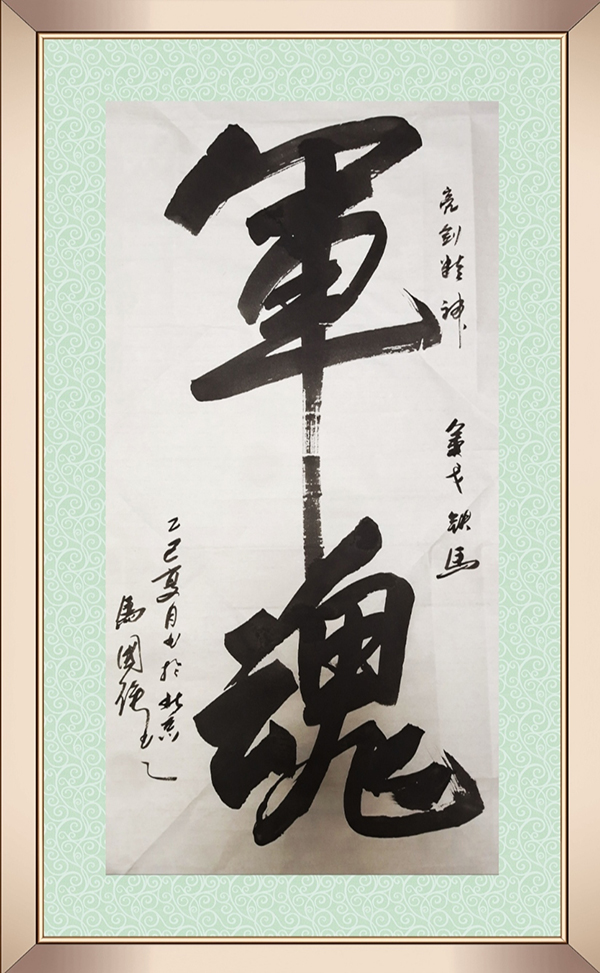 亮剑精神 金戈铁马
軍魂
乙巳夏月书於北京
馬國強书